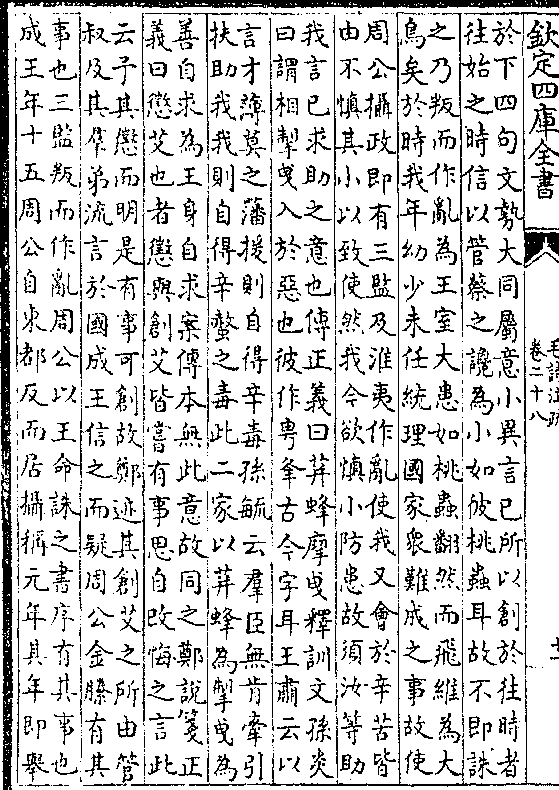 欽定四庫全書
毛詩注疏
卷二十八
於下四句文勢大同屬意小異言已所以創於往時者
往始之時信以管蔡之讒為小如彼桃蟲耳故不即誅
之乃叛而作亂為王室大患如桃蟲翻然而飛維為大
鳥矣於時我年幼少未任統理國家衆難成之事故使
周公攝政即有三監及淮夷作亂使我又會於辛苦皆
由不慎其小以致使然我今欲慎小防患故須汝等助
我言已求助之意也傳正義曰荓蜂摩曳釋訓文孫炎
曰謂相掣曳入於惡也彼作粤夆古今字耳王肅云以
言才薄莫之藩援則自得辛毒孫毓云羣臣無肯牽引
扶助我我則自得辛螫之毒此二家以荓蜂為掣曳為
善自求為王身自求案傳本無此意故同之鄭說箋正
義曰懲艾也者懲與創艾皆嘗有事思自改悔之言此
云予其懲而明是有事可創故鄭迹其創艾之所由管
叔及其羣弟流言於國成王信之而疑周公金縢有其
事也三監叛而作亂周公以王命誅之書序有其事也
成王年十五周公自東都反而居攝稱元年其年即舉